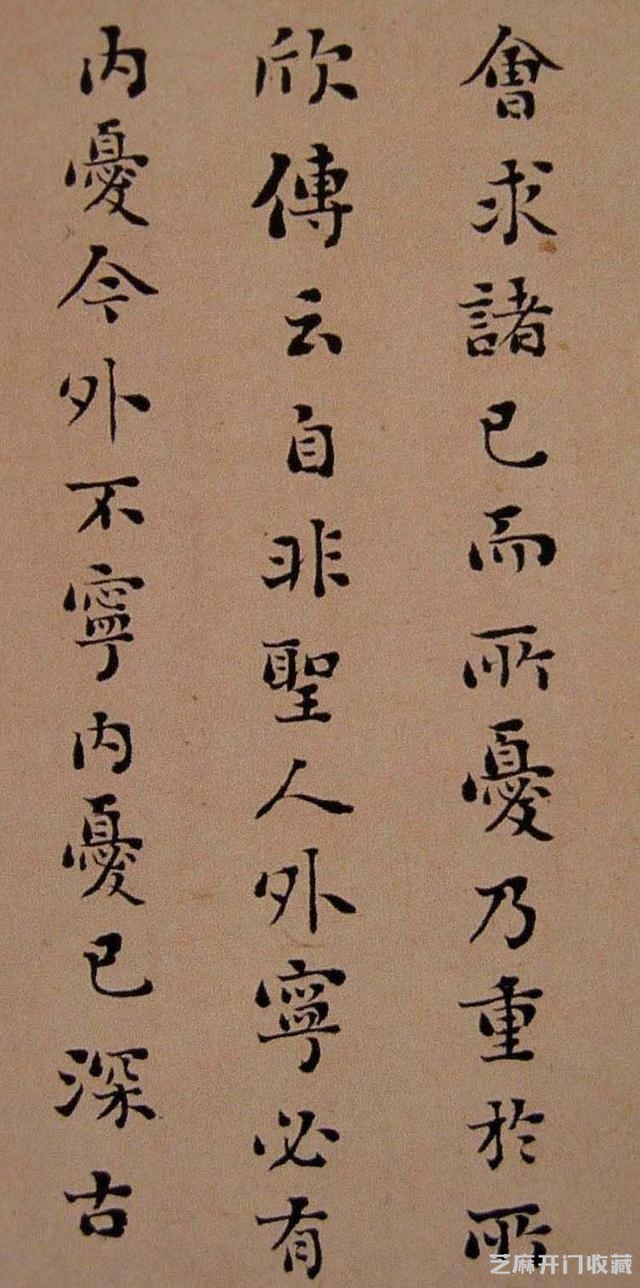 會求諸已而所憂乃重於所
欣傳云自非聖人外寧必有
内憂今外不寧内憂已深古
芝麻开门收藏